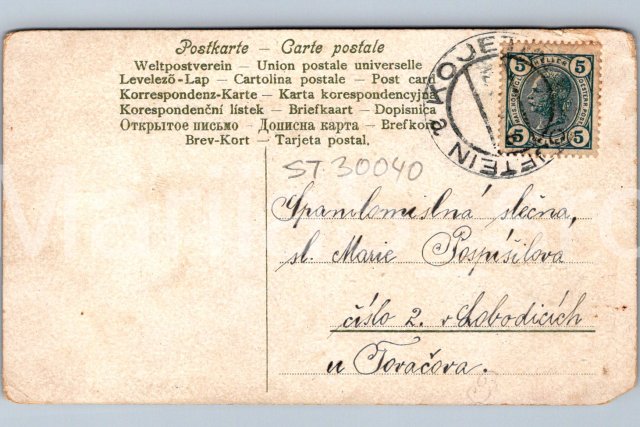 Postkarte – Carte postale
Weltpostverein – Union postale universelle
Levelező-Lap – Cartolina postale – Post card
Korrespondenz-Karte – Karta korespondencyjna
Korespondenční lístek – Briefkaart – Dopisnica
Открытое письмо – Дописна карта – Brefkort
Brev-Kort – Tarjeta postal.
5 HELLER 5
5 5
KOJETEIN a KOJETEIN
ST. 30040
Spanilomislná slečna,
sl. Marie Pospíšilova
číslo 2. v Lobodicích
u Tovačova.